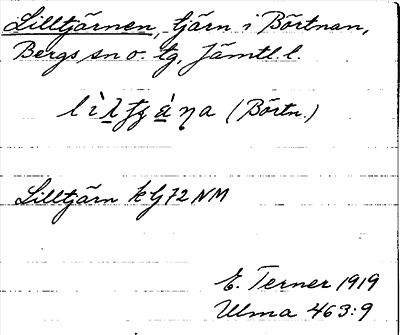 Lilltjärnen, tjärn i Börtnan,
Bergs sn o. tg, Jämtl. l.
(Börtn.)
Lilltjärn k G 72 NM
E. Terner 1919
Ulma 463:9